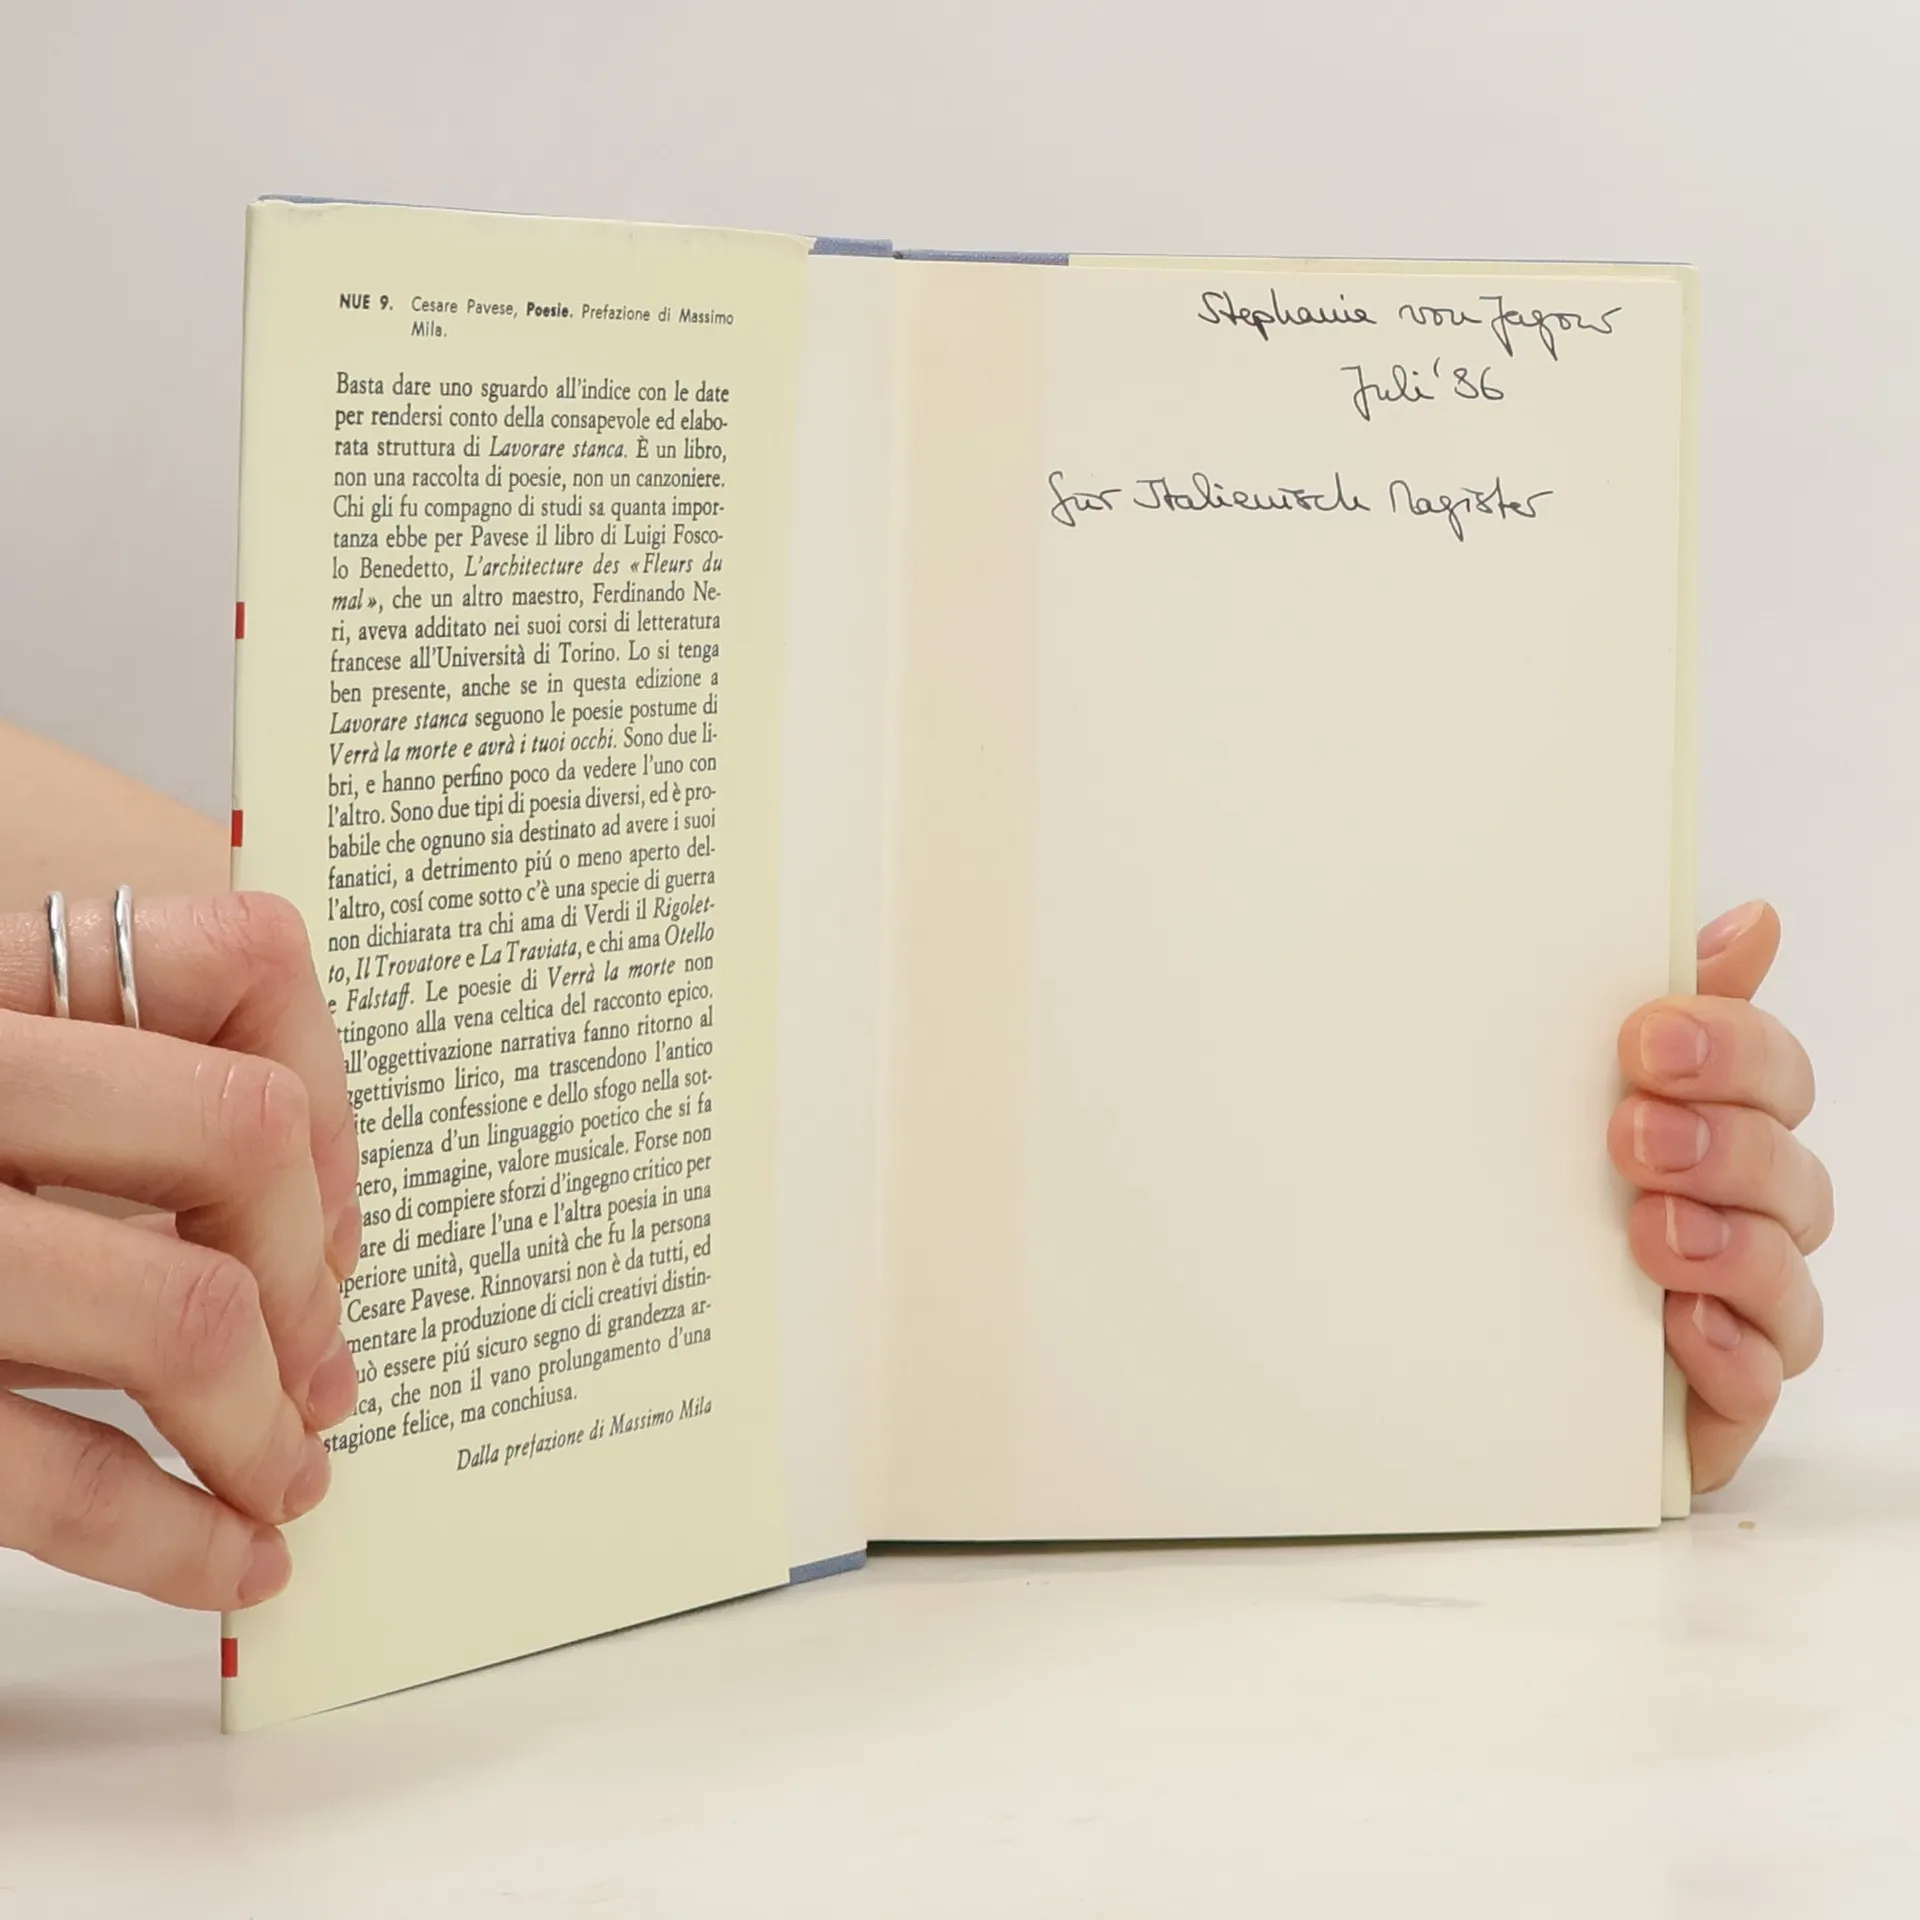 NUE 9. Cesare Pavese, Poesie. Prefazione di Massimo
Mila.
Basta dare uno sguardo all'indice con le date
per rendersi conto della consapevole ed elabo-
rata struttura di Lavorare stanca. È un libro,
non una raccolta di poesie, non un canzoniere.
Chi gli fu compagno di studi sa quanta impor-
tanza ebbe per Pavese il libro di Luigi Fosco-
lo Benedetto, L'architecture des «Fleurs du
mal», che un altro maestro, Ferdinando Ne-
ri, aveva additato nei suoi corsi di letteratura
francese all'Università di Torino. Lo si tenga
ben presente, anche se in questa edizione a
Lavorare stanca seguono le poesie postume di
Verrà la morte e avrà i tuoi occhi. Sono due li-
bri, e hanno perfino poco da vedere l'uno con
l'altro. Sono due tipi di poesia diversi, ed è pro-
babile che ognuno sia destinato ad avere i suoi
fanatici, a detrimento piú o meno aperto del-
l'altro, cosí come sotto c'è una specie di guerra
non dichiarata tra chi ama di Verdi il Rigolet-
to, Il Trovatore e La Traviata, e chi ama Otello
e Falstaff. Le poesie di Verrà la morte non
ttingono alla vena celtica del racconto epico,
all'oggettivazione narrativa fanno ritorno al
ggettivismo lirico, ma trascendono l'antico
ite della confessione e dello sfogo nella sot-
sapienza d'un linguaggio poetico che si fa
nero, immagine, valore musicale. Forse non
aso di compiere sforzi d'ingegno critico per
are di mediare l'una e l'altra poesia in una
periore unità, quella unità che fu la persona
Cesare Pavese. Rinnovarsi non è da tutti, ed
mentare la produzione di cicli creativi distin-
uò essere piú sicuro segno di grandezza ar-
ica, che non il vano prolungamento d'una
stagione felice, ma conchiusa.
Dalla prefazione di Massimo Mila
Stephanie von Jagow
Juli '86
für Italienisch Magister